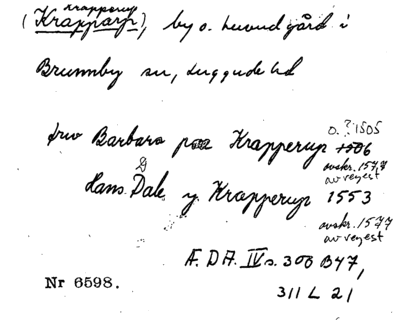 krapperup
(Krapparp), by o. huvudgård i
Brunnby sn, Luggude hd
o. ? 1505
fru Barbara paa Krapperup 1506
avskr. 1577
av regest
Hans Dale y Krapperup 1553
avskr. 1577
av regest
Æ. DA. IV s. 300 B47,
311 L 21
Nr 6598.